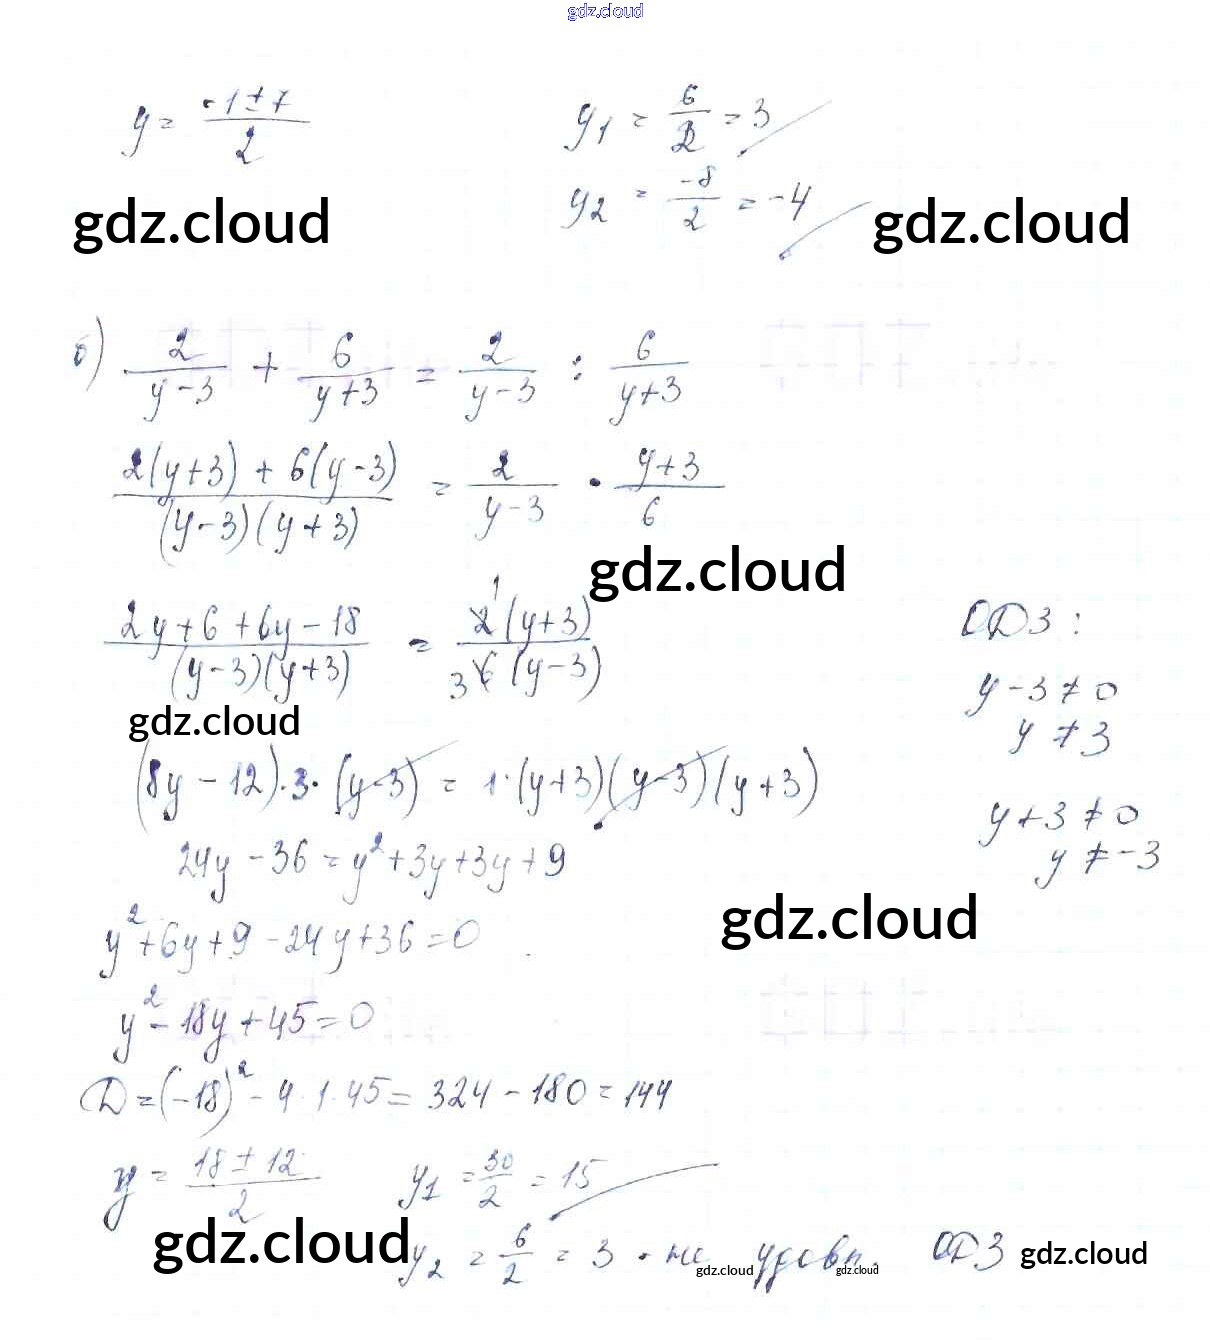 gdz.cloud
y = (-1 ± 7)/2    y₁ = 6/2 = 3
y₂ = -8/2 = -4
gdz.cloud gdz.cloud
б) 2/(y-3) + 6/(y+3) = 2/(y-3) : 6/(y+3)
(2(y+3) + 6(y-3))/((y-3)(y+3)) = 2/(y-3) · (y+3)/6
gdz.cloud
(2y+6+6y-18)/((y-3)(y+3)) = ¹2(y+3)/(₃6(y-3))    ОДЗ:
y-3≠0
y≠3
gdz.cloud
(8y-12)·3·(y-3) = 1·(y+3)(y-3)(y+3)
y+3≠0
24y-36 = y²+3y+3y+9    y≠-3
gdz.cloud
y²+6y+9-24y+36=0
y²-18y+45=0
D=(-18)²-4·1·45=324-180=144
y = (18±12)/2    y₁ = 30/2 = 15
gdz.cloud y₂ = 6/2 = 3 - не удовл. ОДЗ gdz.cloud
gdz.cloud gdz.cloud